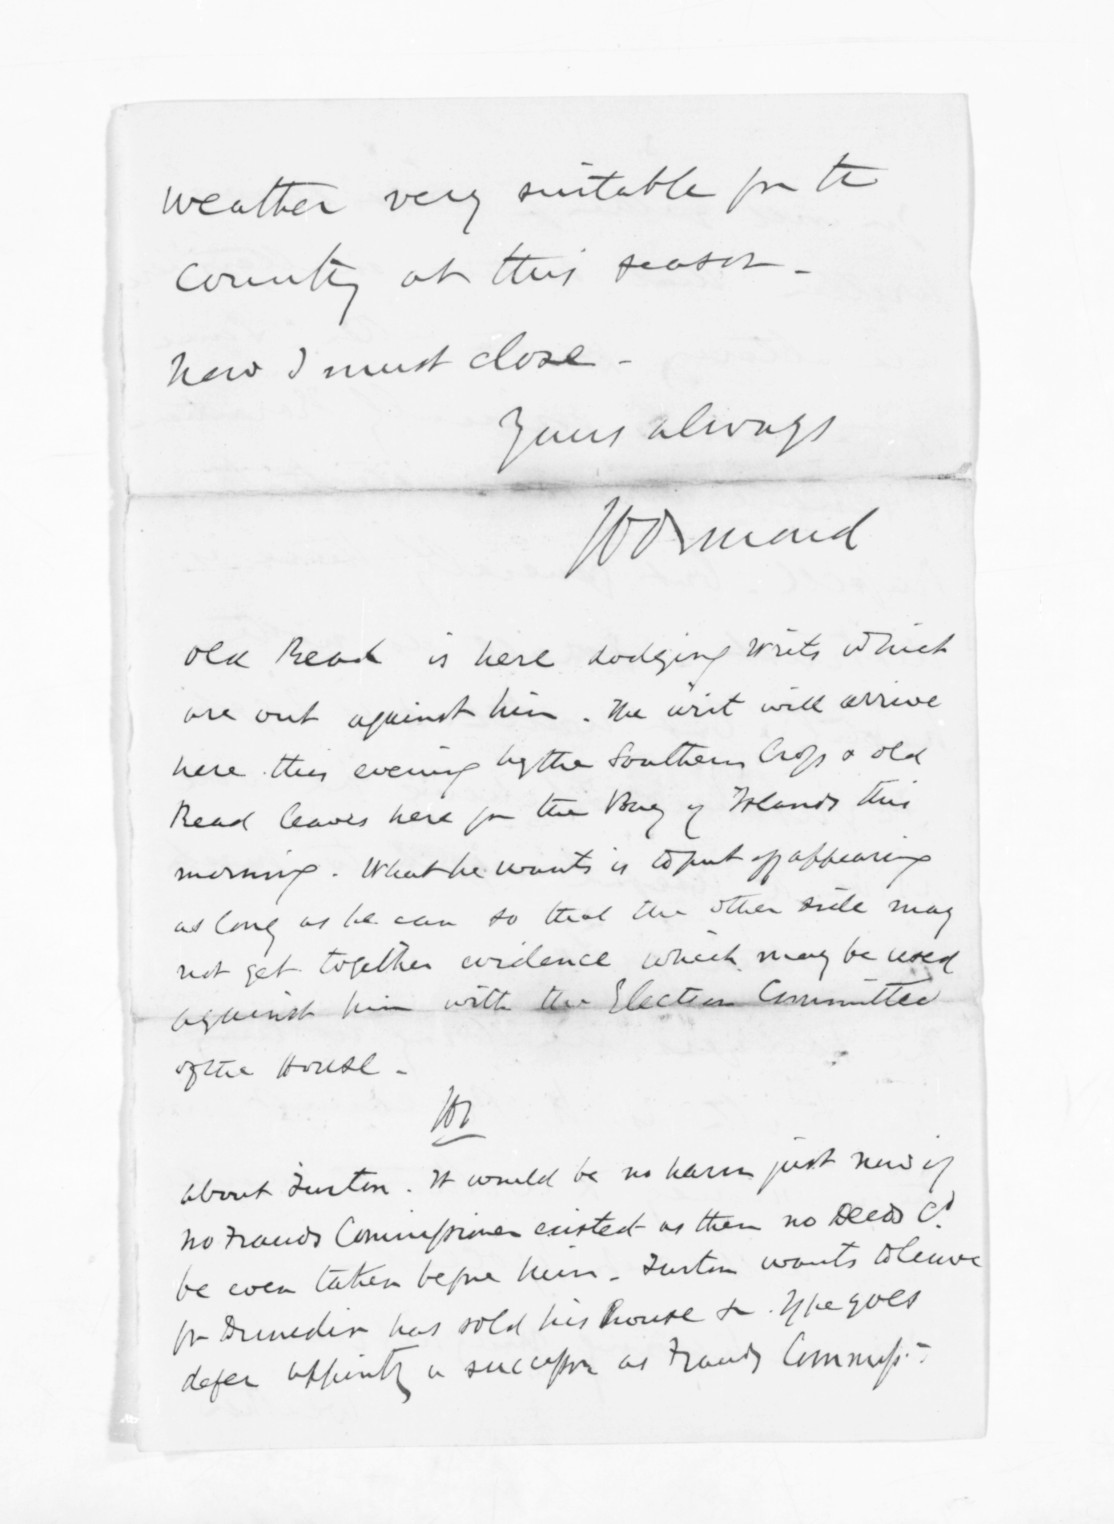 weather very suitable for the
country at this season -
Now I must close -
Yours always
JD Ormond
Old Read is here dodging writs which
are out against him. The writ will arrive
here this evening by the Southern Cross & old
Read leaves here for the Bay of Islands this
morning. What he wants is to put off appearing
as long as he can so that the other side may
not get together evidence which may be used
against him with the Election Committee
of the House -
JDO
about Turton. It would be no harm just now if
no Frauds Commissioner existed as then no Deeds cd.
be even taken before him - Turton wants to leave
for Dunedin has sold his house &c. If he goes
defer appointg a successor as Frauds Commissr.